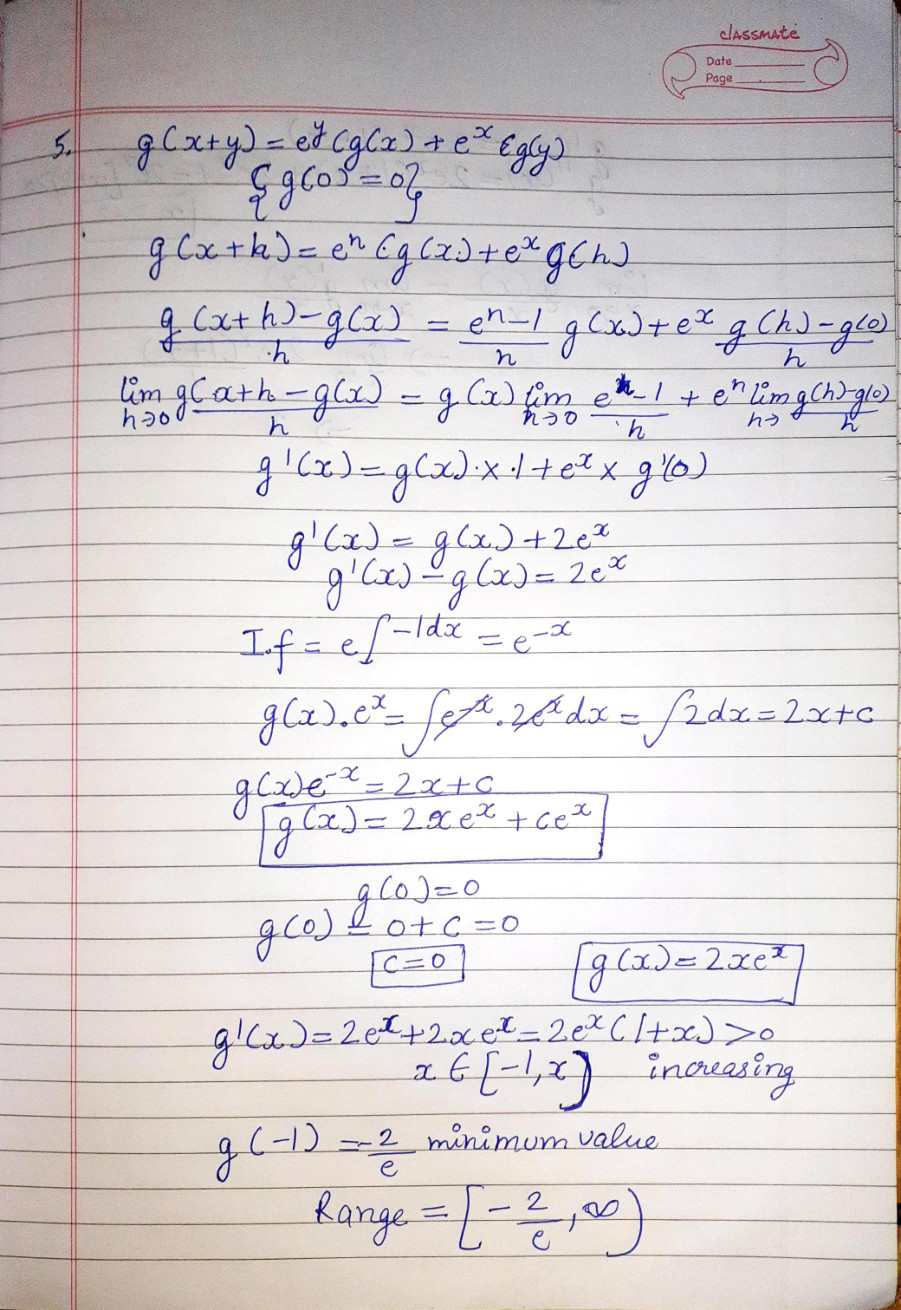 classmate
Date
Page
5. g(x+y) = e^y (g(x) + e^x (g(y)
{g(0) = 0}
g(x+h) = e^h (g(x) + e^x g(h)
g(x+h) - g(x) / h = e^h - 1 / h g(x) + e^x g(h) - g(0) / h
lim h→0 g(x+h - g(x) / h = g(x) lim h→0 e^h - 1 / h + e^n lim h→ g(h) - g(0) / h
g'(x) = g(x) · x · 1 + e^x x g'(0)
g'(x) = g(x) + 2e^x
g'(x) - g(x) = 2e^x
I.f = e∫^-1dx = e^-x
g(x).e^x = ∫e^-x . 2e^x dx = ∫2dx = 2x+c
g(x)e^-x = 2x+c
g(x) = 2xe^x + ce^x
g(0) = 0
g(0) = 0 + c = 0
c=0 g(x) = 2xe^x
g'(x) = 2e^x + 2xe^x = 2e^x (1+x) > 0
x ∈ [-1, x) increasing
g(-1) = -2/e minimum value
Range = [-2/e, ∞)